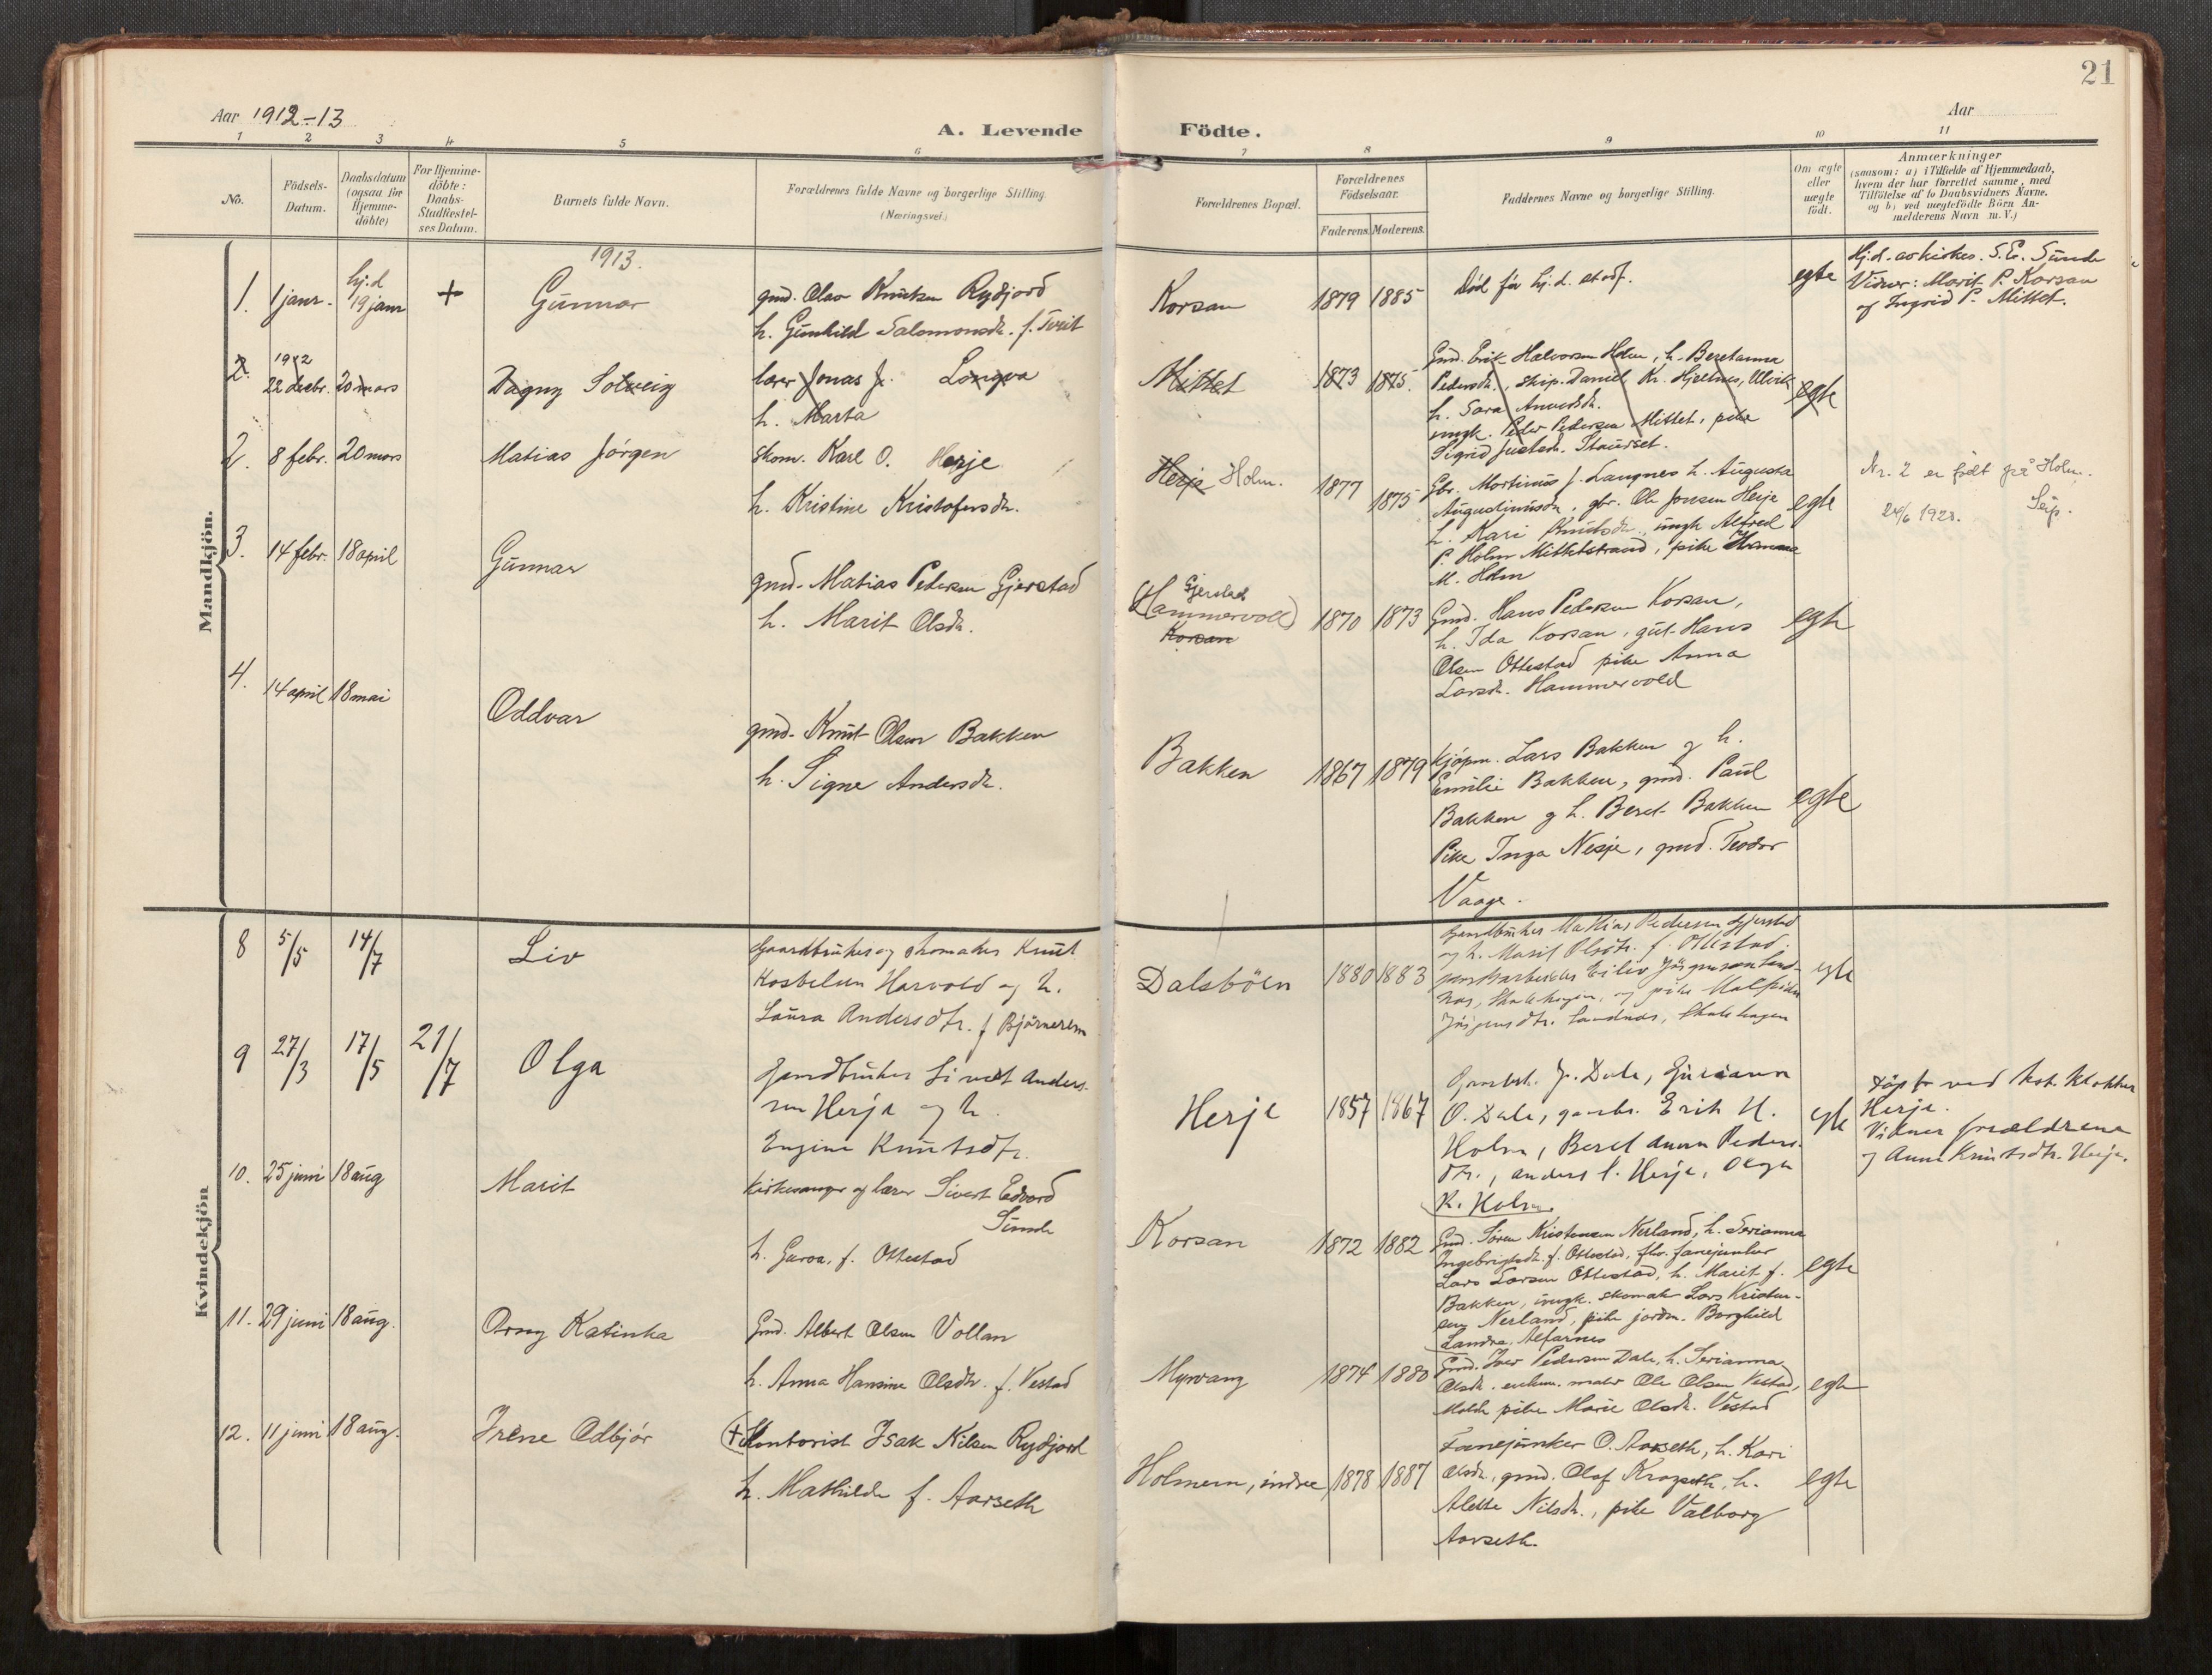 21
Aar 1912-13
A. Levende Födte.
Aar
1 2 3 4 5 6 7 8 9 10 11
No.
Födsels-
Datum.
Daabsdatum
(ogsaa for
Hjemme-
döbte)
For Hjemme-
döbte:
Daabs-
Stadfæstel-
ses Datum.
Barnets fulde Navn.
Forældrenes fulde Navne og borgerlige Stilling.
(Næringsvei.)
Forældrenes Bopæl.
Forældrenes
Födselsaar.
Faderens. Moderens.
Faddernes Navne og borgerlige Stilling.
Om ægte
eller
uægte
födt.
Anmærkninger
(saasom: a) i Tilfælde af Hjemmedaab,
hvem der har forrettet samme, med
Tilföielse af to Daabsvidners Navne.
og b) ved uegtefödte Börn An-
melderens Navn m. V.)
Mandkjön.
1913.
1. 1 janr. hj.d 19 janr + Gunnar
gmd. Olav Knutsen Rydjord
h. Gunhild Salomonsdr. f. Tveit
Korsan 1879 1885
Död før hj.d. stadf.
egte
Hj.d. av kirkes. S. E. Sunde
Vidner: Marit P. Korsan
og Ingrid P. Mittet.
2. 1912 22 decbr. 20 mars Dagny Solveig
lærer Jonas J. Longva
h. Marta
Mittet 1873 1875.
Gmd. Erik Halvorsen Holm, h. Beretanna
Pedersdr., skip. Daniel Kr. Hjelnes, Ulvik
h. Sara Anversdr.
ungk. Peder Pedersen Mittet, pike
Sigrid Justsdr. Staurset.
egte
2. 8 febr. 20 mars Matias Jörgen
skom. Karl O. Herje
h. Kristine Kristofersdr.
Herje Holm. 1877 1875
Gbr. Mortinus J. Langnes h. Augusta
Augustinusdr, gbr. Ole Jonsen Herje
h. Kari Knutsdr. ungk Alfred
P. Holm Mittetstrand, pike
M. Holm
egte
Nr. 2 er født på Holm.
24/6 1928.
3. 14 febr. 18 april Gunnar
gmd. Matias Pedersen Gjerstad
h. Marit Olsdr.
Gjerstad
(Hammervold)
Korsan
1870 1873
Gmd. Hans Pedersen Korsan,
h. Ida Korsan, gut Hans
Olsen Ottestad pike Anna
Larsdr. Hammervold
egte
4. 14 april 18 mai Oddvar
gmd. Knut Olsen Bakken
h. Signe Andersdr.
Bakken 1867 1879
Kjøpm. Lars Bakken og h.
Emilie Bakken, gmd. Paul
Bakken og h. Beret Bakken
Pike Inga Nesje, gmd. Teodor
Vaage.
egte
Kvindekjön
8 5/5 14/7 Liv
Gaardbruker og skomaker Knut
Kosbelsen Harvold og h.
Laura Andersdtr. f Bjørnerem
Dalsbøen 1880 1883
Gardbruker Mathias Pedersen Gjerstad
og h. Marit Olsdtr. f. Ottestad.
Eiliv Jörgensen Land-
nas, Skalehagen, og pike
Jörgensdtr. Landnas, Skalehagen
egte
9 27/3 17/5 21/7 Olga
Gardbruker Sivert Anders-
sen Herje og h.
Engine Knutsdtr.
Herje 1857 1867
J. Dale, Guriann
O. Dale, gardbr. Erik H.
Holm, Beret Anna Peders-
dtr., Anders S. Herje, Olga
K. Holm.
egte
Döpt ved kst. klokker
Herje.
Vidner forældrene
og Anne Knutsdtr. Herje.
10. 25 juni 18 aug Marit
Kirkesanger og lærer Sivert Edvard
Sunde
h. Guroa, f. Ottestad
Korsan 1872 1882
Gmd. Sören Kristensen Nerland, h. Serianna
Ingebrigtsdr. f. Ottestad, fanejunker
Lars Larsen Ottestad, h. Marit f.
Bakken, ungk. skomak. Lars Kristen-
sen Nerland, pike jordm. Borghild
Landre, Alfarnes
egte
11. 29 juni 18 aug. Orny Katinka
Gmd. Albert Olsen Vollan
h. Anna Hansine Olsdtr. f. Vestad
Myrvang 1874 1880
Gmd. Iver Pedersen Dale, h. Serianna
Olsdr. enkem. maler Ole Olsen Vestad,
Molde pike Marie Olsdr. Vestad
egte
12. 11 juni 18 aug. Irene Odbjör
Kontorist Isak Nilsen Rydjord
h. Mathilde f. Aarseth
Holmem, indre 1878 1887
Fanejunker O. Aarseth, h. Kari
Olsdr, gmd. Olaf Krogseth, h.
Alette Nilsdr., pike Valborg
Aarseth.
egte